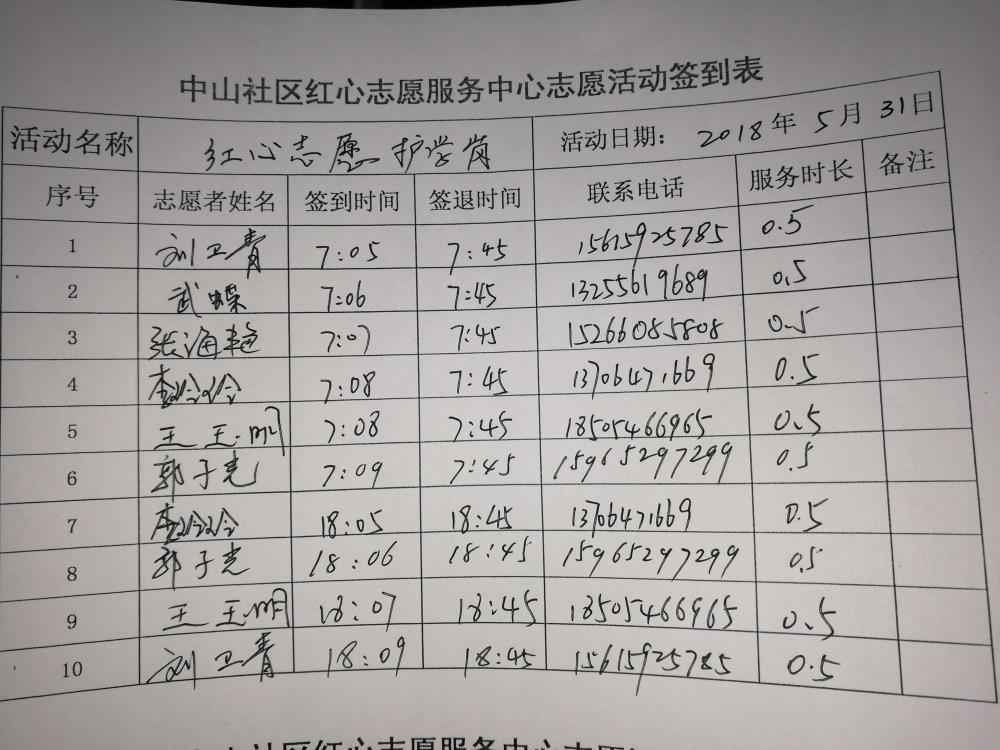 中山社区红心志愿服务中心志愿活动签到表
活动名称 红心志愿护学岗 活动日期: 2018年5月31日
序号 志愿者姓名 签到时间 签退时间 联系电话 服务时长 备注
1 刘卫青 7:05 7:45 15615925785 0.5
2 武蝶 7:06 7:45 13255619689 0.5
3 张海艳 7:07 7:45 15266085808 0.5
4 李 7:08 7:45 13706471669 0.5
5 王玉明 7:08 7:45 18505466965 0.5
6 郭子光 7:09 7:45 15965297299 0.5
7 李 18:05 18:45 13706471669 0.5
8 郭子光 18:06 18:45 15965297299 0.5
9 王玉明 18:07 18:45 18505466965 0.5
10 刘卫青 18:09 18:45 15615925785 0.5
山社区红心志愿服务中心志愿